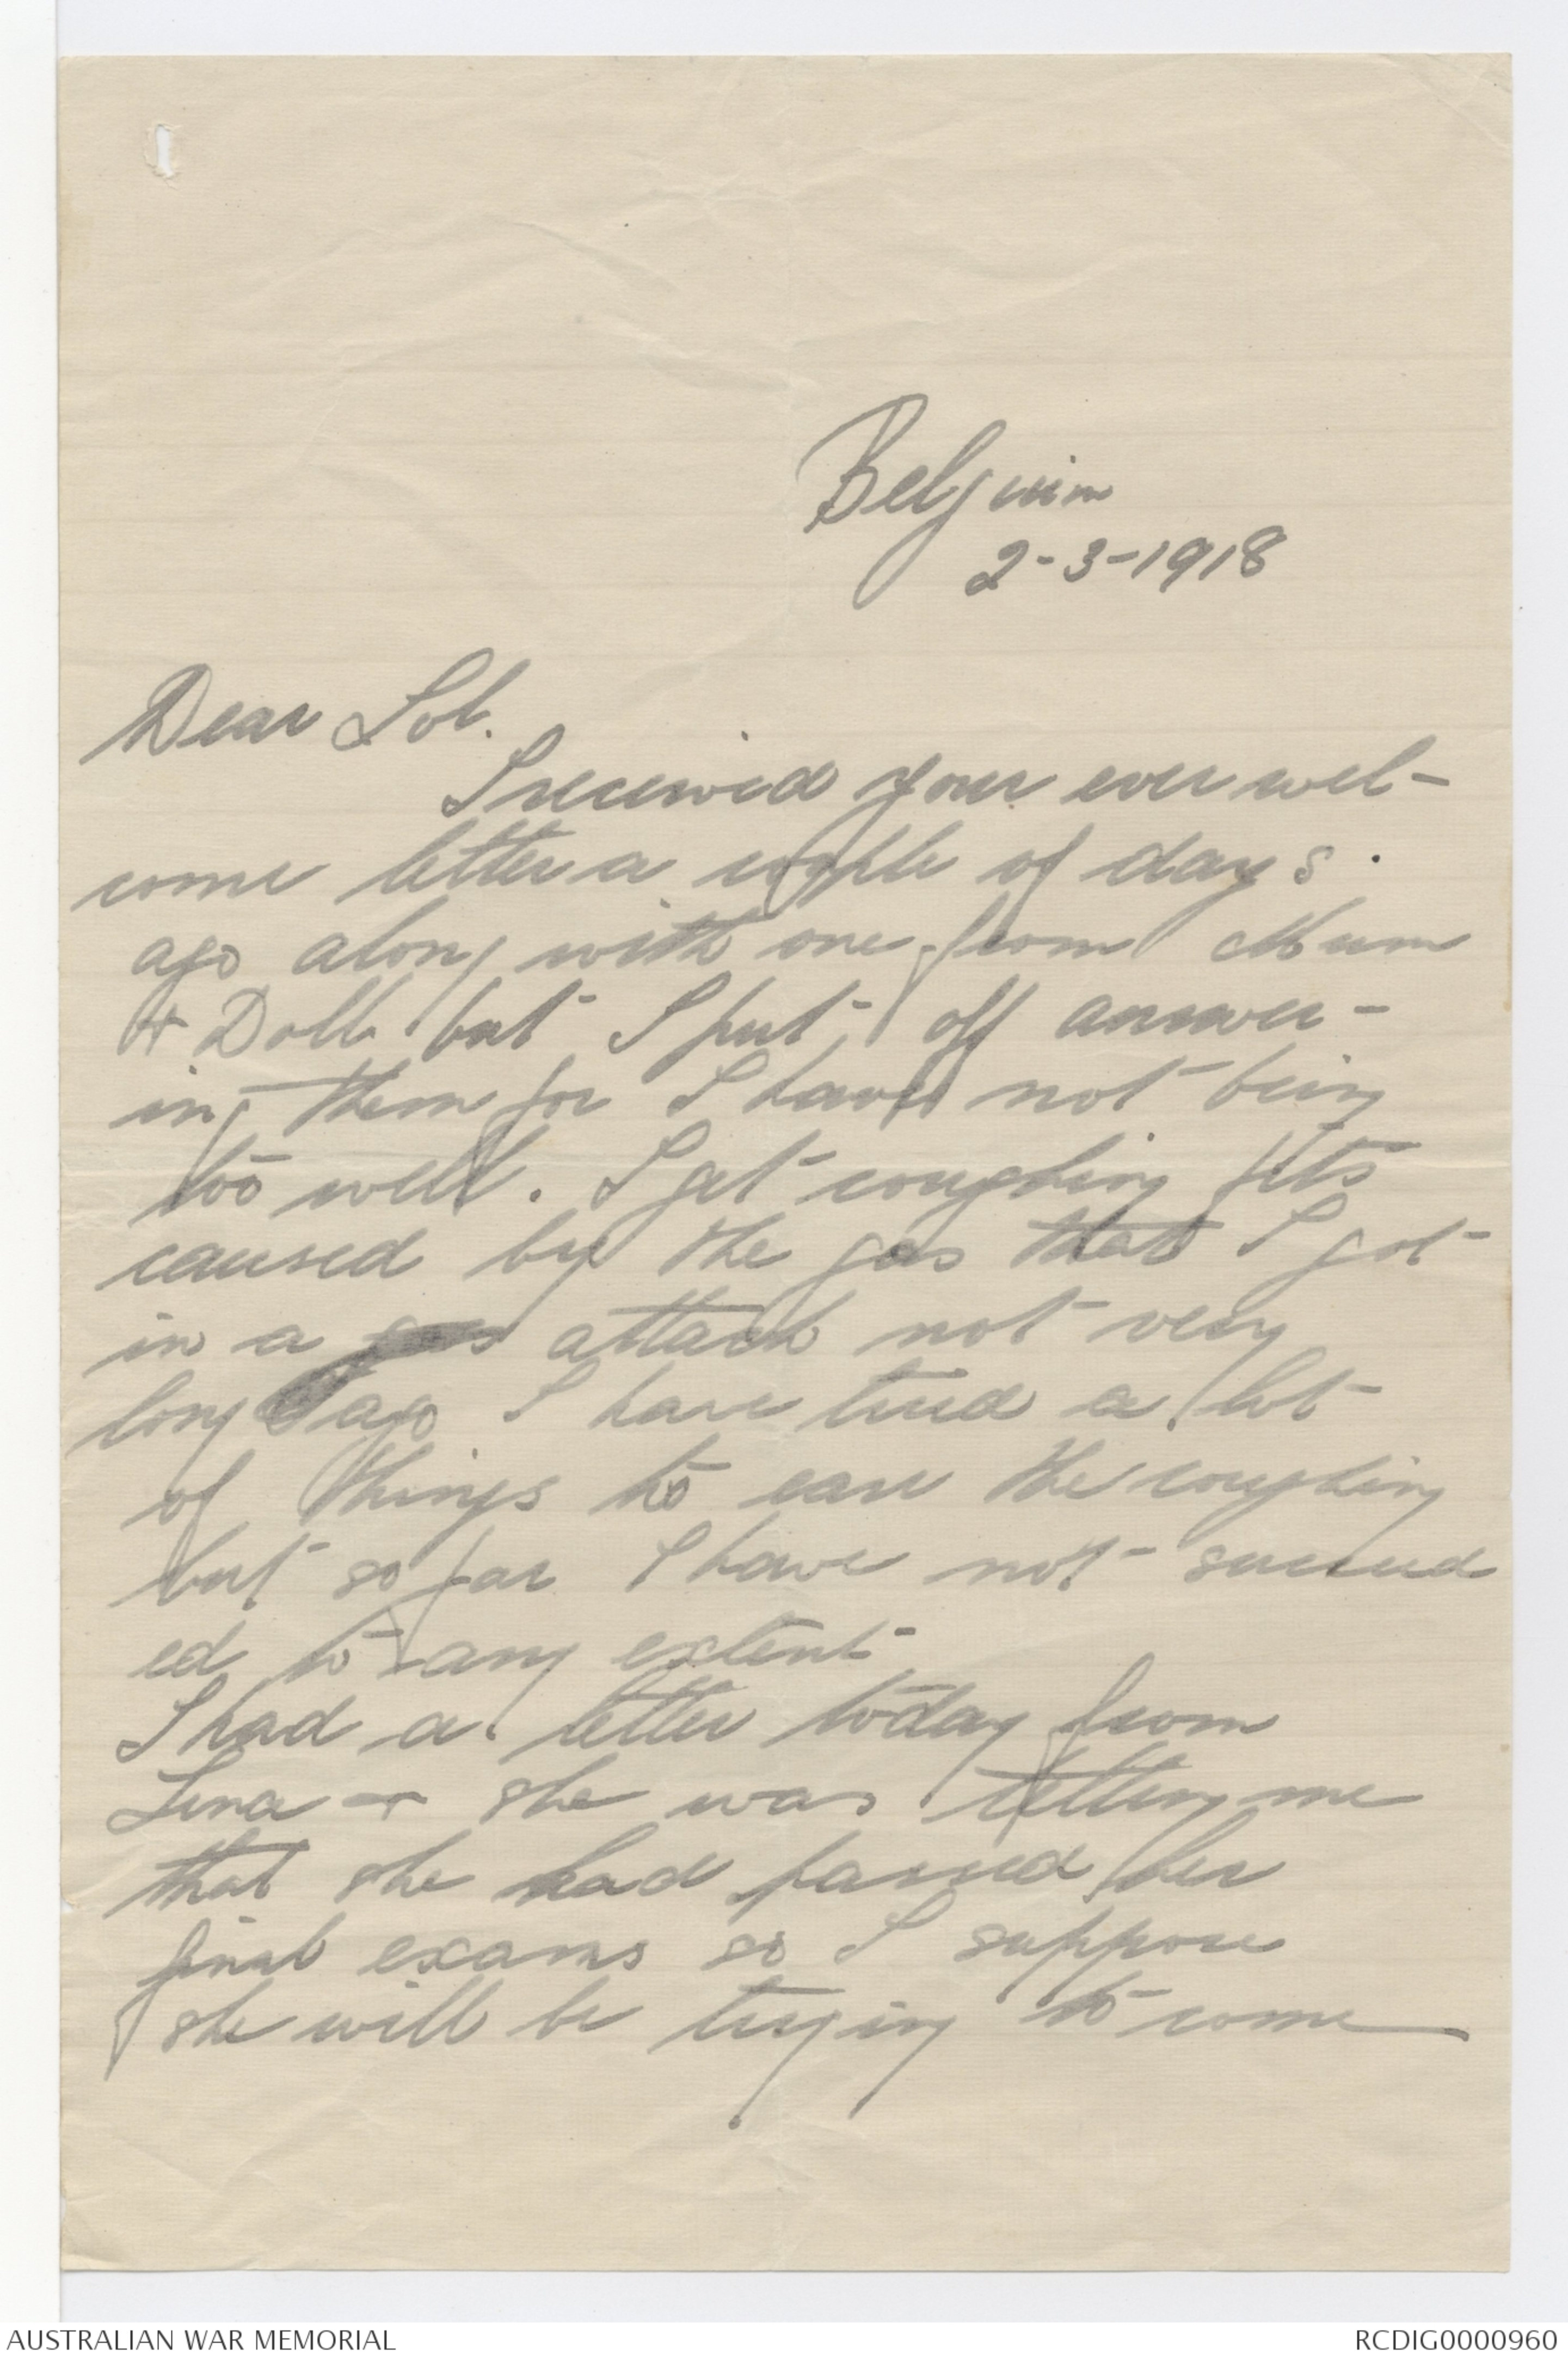 Belgium
2-3-1918
Dear Sol.
I received your ever wel-
come letter a couple of days.
ago along with one from Mum
+ Doll. but I put off answer-
ing them for I have not being
too well. I get coughing fits
caused by the gas that I got
in a gas attack not very
long ago I have tried a lot
of things to ease the coughing
but so far I have not succeed
ed to any extent
I had a letter today from
Lena + she was telling me
that she had passed her
final exams so I suppose
she will be trying to come
AUSTRALIAN WAR MEMORIAL
RCDIG0000960